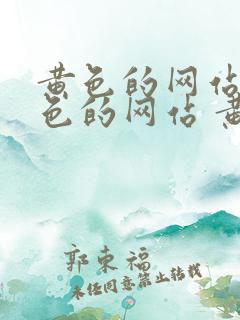 黄色的网站
色的网站 黄
郭东福
未经同意禁止转载